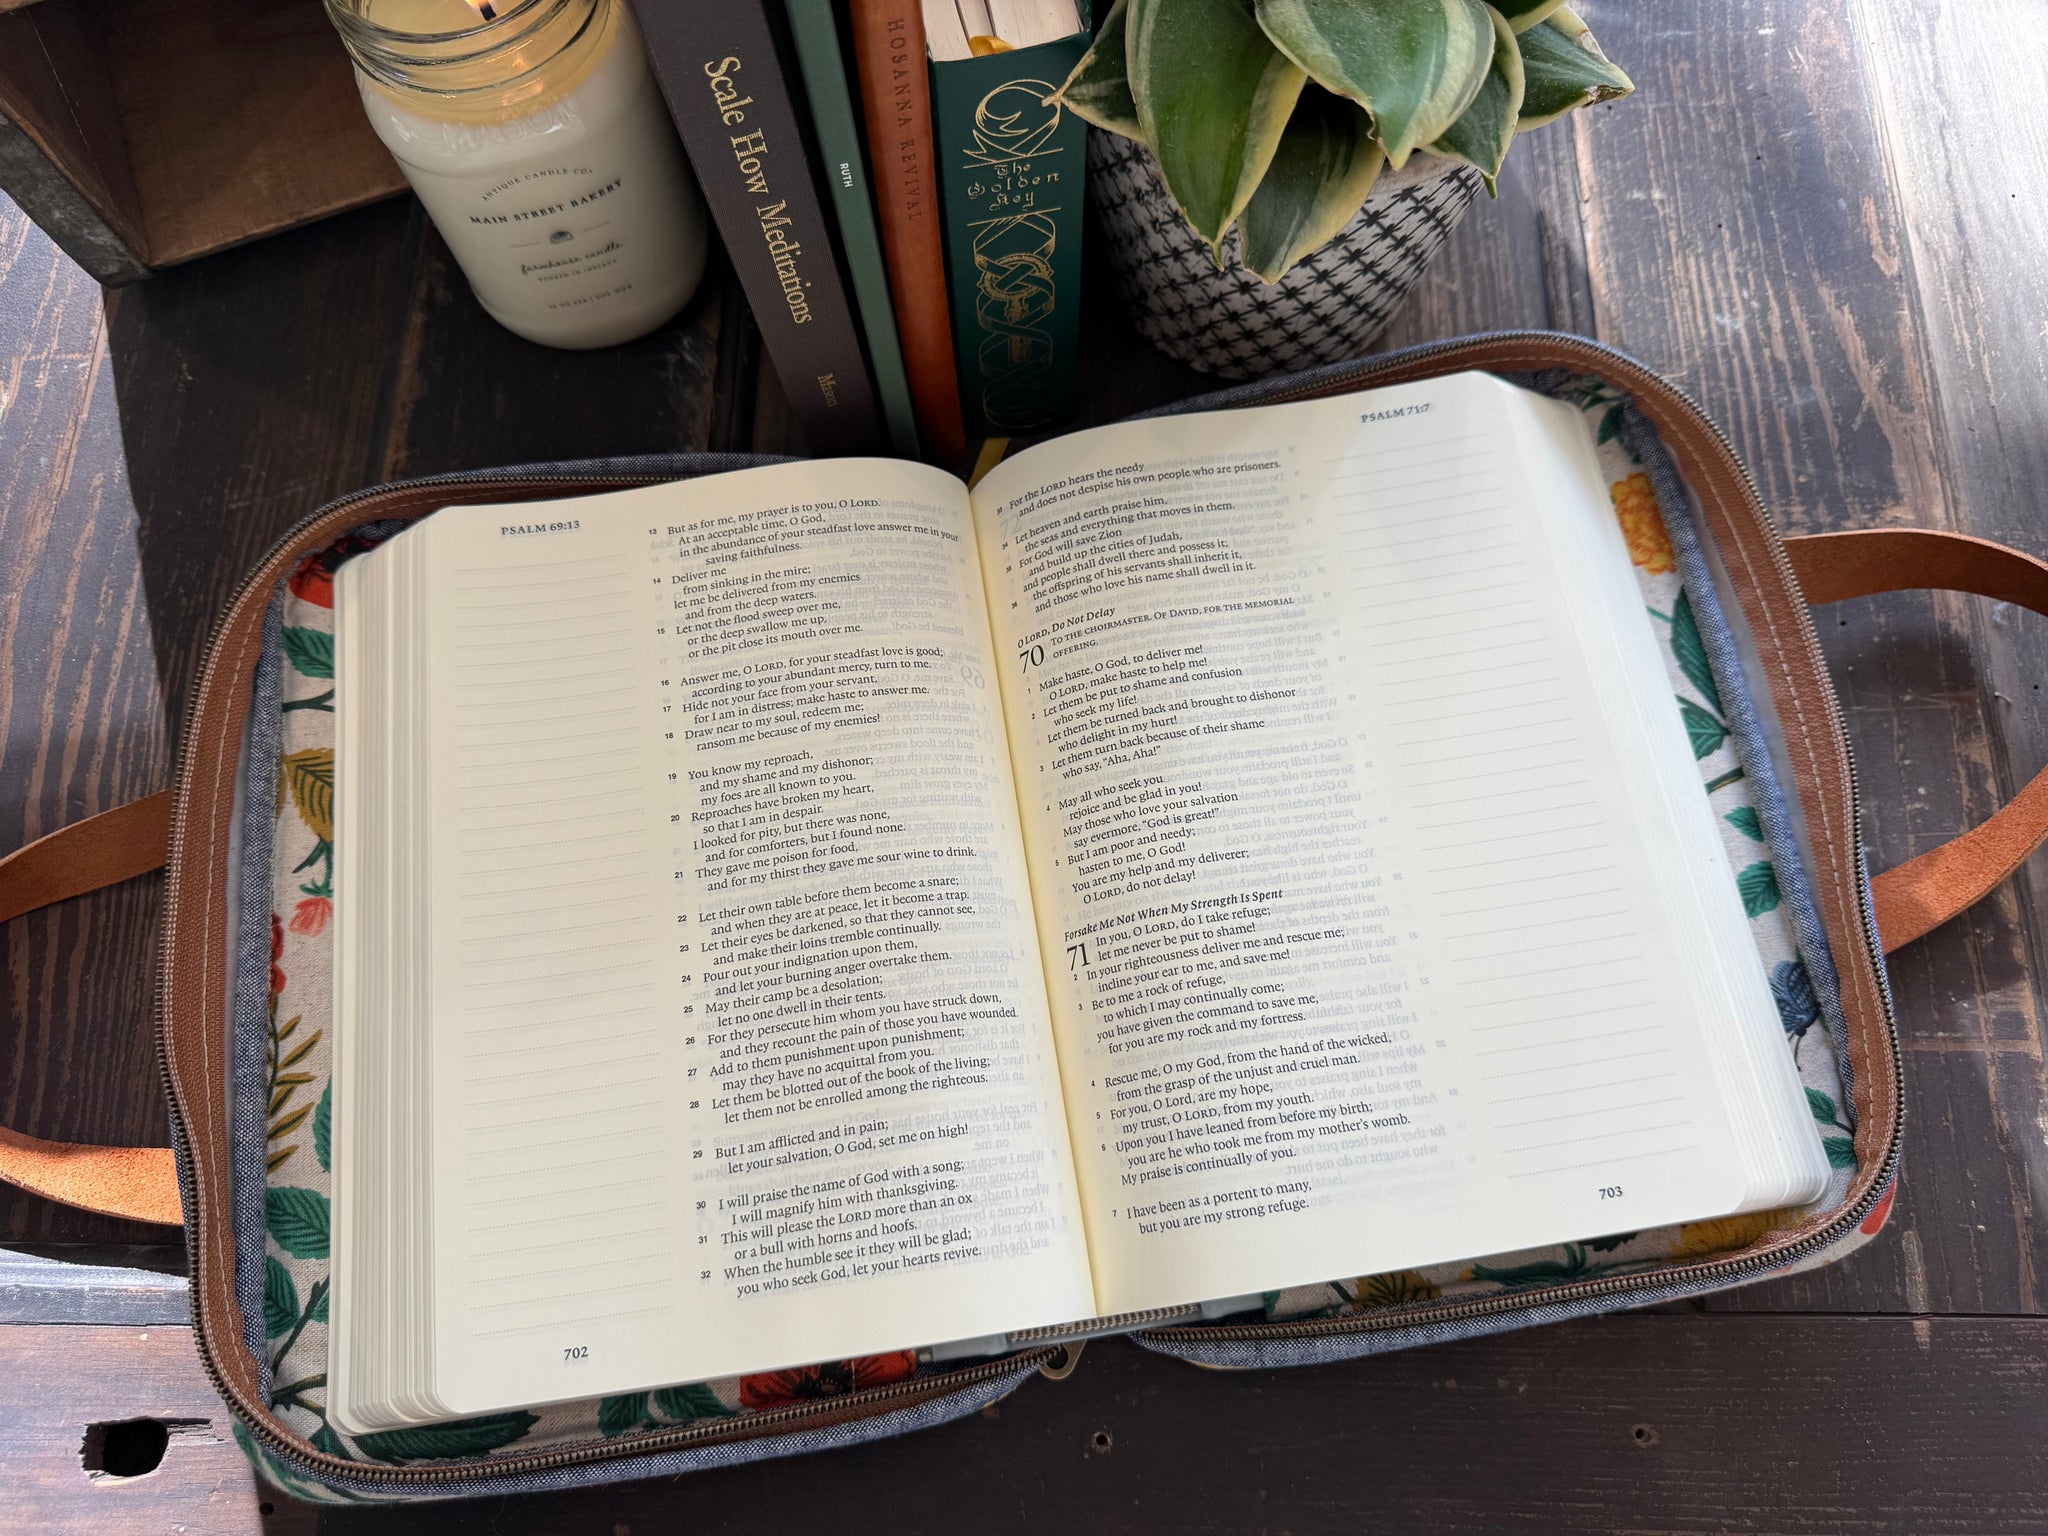 ANTIQUE CANDLE CO.
MAIN STREET BAKERY
farmhouse candle
POURED IN INDIANA
Scale How Meditations
Mason
RUTH
HOSANNA REVIVAL
The
Golden
Key
PSALM 69:13
13 But as for me, my prayer is to you, O LORD.
At an acceptable time, O God,
in the abundance of your steadfast love answer me in your
saving faithfulness.
14 Deliver me
from sinking in the mire;
let me be delivered from my enemies
and from the deep waters.
15 Let not the flood sweep over me,
or the deep swallow me up,
or the pit close its mouth over me.
16 Answer me, O LORD, for your steadfast love is good;
according to your abundant mercy, turn to me.
17 Hide not your face from your servant,
for I am in distress; make haste to answer me.
18 Draw near to my soul, redeem me;
ransom me because of my enemies!
19 You know my reproach,
and my shame and my dishonor;
my foes are all known to you.
20 Reproaches have broken my heart,
so that I am in despair.
I looked for pity, but there was none,
and for comforters, but I found none.
21 They gave me poison for food,
and for my thirst they gave me sour wine to drink.
22 Let their own table before them become a snare;
and when they are at peace, let it become a trap.
23 Let their eyes be darkened, so that they cannot see,
and make their loins tremble continually.
24 Pour out your indignation upon them,
and let your burning anger overtake them.
25 May their camp be a desolation;
let no one dwell in their tents.
26 For they persecute him whom you have struck down,
and they recount the pain of those you have wounded.
27 Add to them punishment upon punishment;
may they have no acquittal from you.
28 Let them be blotted out of the book of the living;
let them not be enrolled among the righteous.
29 But I am afflicted and in pain;
let your salvation, O God, set me on high!
30 I will praise the name of God with a song;
I will magnify him with thanksgiving.
31 This will please the LORD more than an ox
or a bull with horns and hoofs.
32 When the humble see it they will be glad;
you who seek God, let your hearts revive.
702
PSALM 71:7
33 For the LORD hears the needy
and does not despise his own people who are prisoners.
34 Let heaven and earth praise him,
the seas and everything that moves in them.
35 For God will save Zion
and build up the cities of Judah,
and people shall dwell there and possess it;
36 the offspring of his servants shall inherit it,
and those who love his name shall dwell in it.
O LORD, Do Not Delay
70 TO THE CHOIRMASTER. OF DAVID, FOR THE MEMORIAL
OFFERING.
1 Make haste, O God, to deliver me!
O LORD, make haste to help me!
2 Let them be put to shame and confusion
who seek my life!
Let them be turned back and brought to dishonor
who delight in my hurt!
3 Let them turn back because of their shame
who say, “Aha, Aha!”
4 May all who seek you
rejoice and be glad in you!
May those who love your salvation
say evermore, “God is great!”
5 But I am poor and needy;
hasten to me, O God!
You are my help and my deliverer;
O LORD, do not delay!
Forsake Me Not When My Strength Is Spent
71 In you, O LORD, do I take refuge;
let me never be put to shame!
2 In your righteousness deliver me and rescue me;
incline your ear to me, and save me!
3 Be to me a rock of refuge,
to which I may continually come;
you have given the command to save me,
for you are my rock and my fortress.
4 Rescue me, O my God, from the hand of the wicked,
from the grasp of the unjust and cruel man.
5 For you, O Lord, are my hope,
my trust, O LORD, from my youth.
6 Upon you I have leaned from before my birth;
you are he who took me from my mother’s womb.
My praise is continually of you.
7 I have been as a portent to many,
but you are my strong refuge.
703